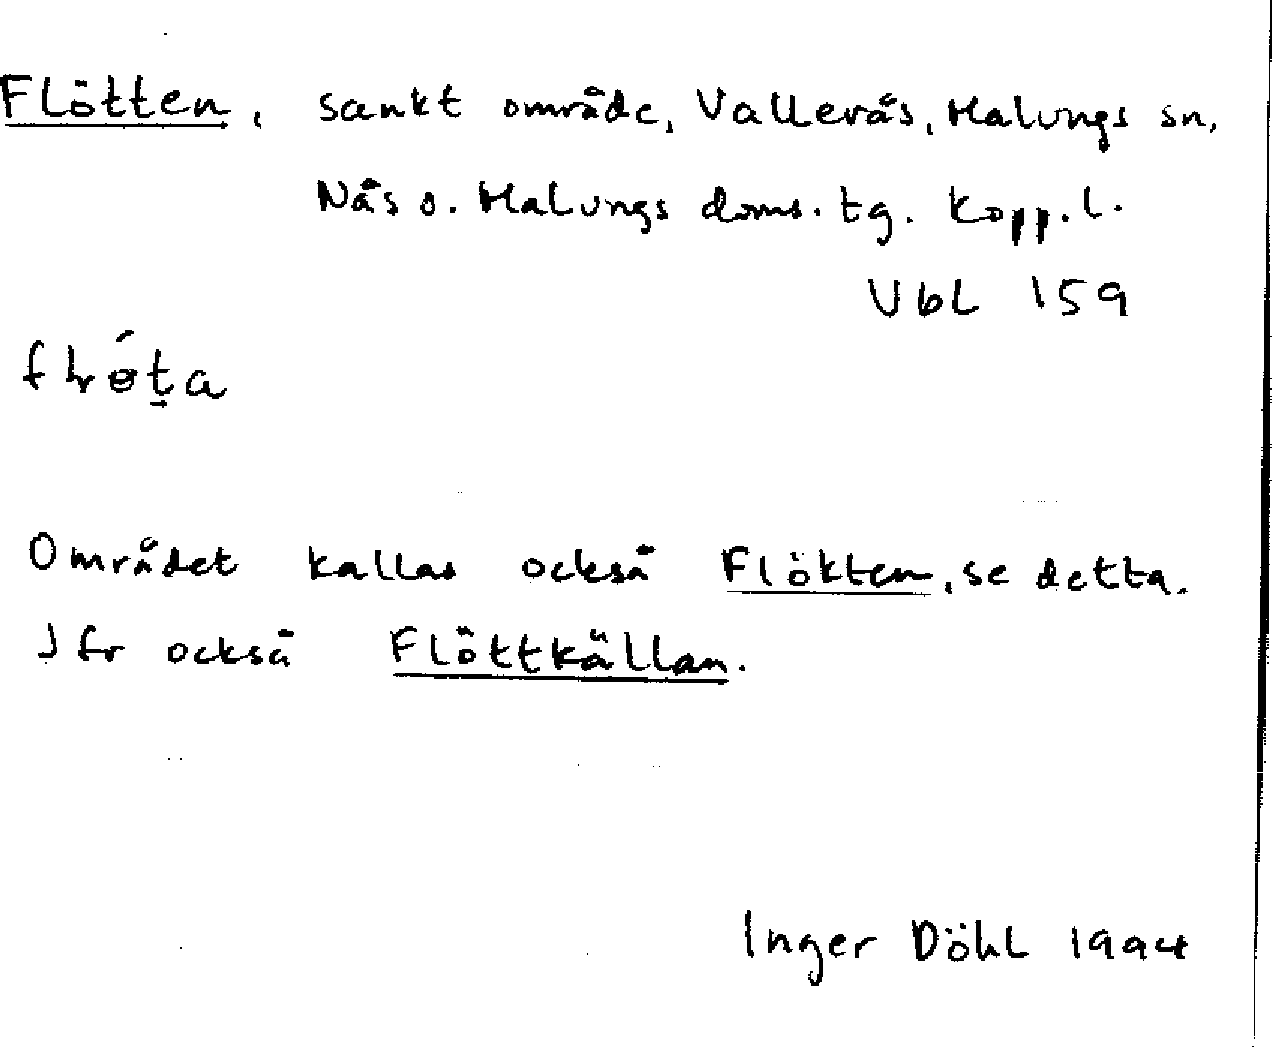 Flötten, sankt område, Vallerås, Malungs sn,
Nås o. Malungs doms. tg. Kopp. l.
Ubl 159
Området kallas också Flökten, se detta.
Jfr också Flöttkällan.
Inger Döhl 1994